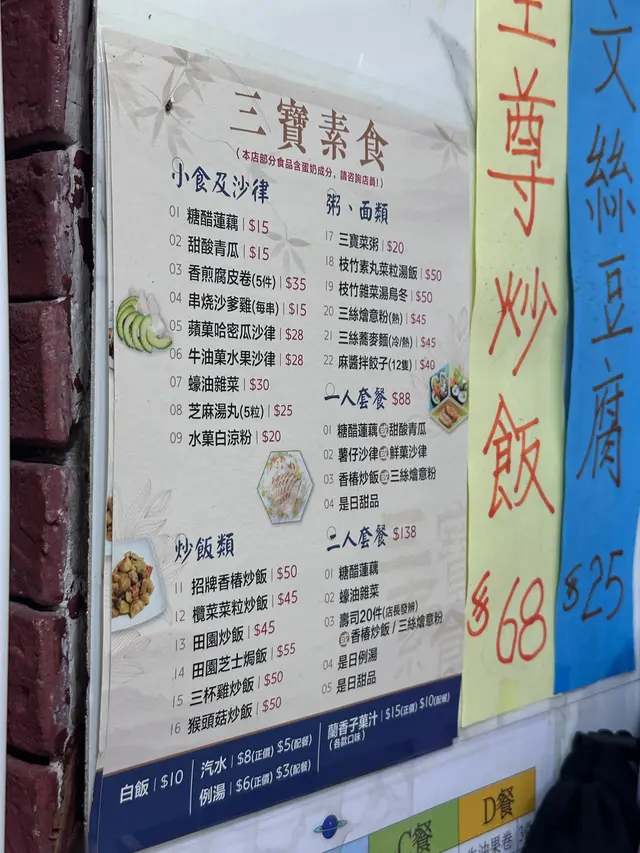 三寶素食
(本店部分食品含蛋奶成分，請咨詢店員！)
小食及沙律
01 糖醋蓮藕 | $15
02 甜酸青瓜 | $15
03 香煎腐皮卷(5件) | $35
04 串烧沙爹雞(每串) | $15
05 蘋菓哈密瓜沙律 | $28
06 牛油菓水果沙律 | $28
07 蠔油雜菜 | $30
08 芝麻湯丸(5粒) | $25
09 水菓白涼粉 | $20
炒飯類
11 招牌香椿炒飯 | $50
12 欖菜菜粒炒飯 | $45
13 田園炒飯 | $45
14 田園芝士焗飯 | $55
15 三杯雞炒飯 | $50
16 猴頭菇炒飯 | $50
粥、面類
17 三寶菜粥 | $20
18 枝竹素丸菜粒湯飯 | $50
19 枝竹雜菜湯烏冬 | $50
20 三絲燴意粉(熱) | $45
21 三絲蕎麥麵(冷/熱) | $45
22 麻醬拌餃子(12隻) | $40
一人套餐 $88
01 糖醋蓮藕或甜酸青瓜
02 薯仔沙律或鮮菓沙律
03 香椿炒飯或三絲燴意粉
04 是日甜品
二人套餐 $138
01 糖醋蓮藕
02 蠔油雜菜
03 壽司20件(店長發辦)
或香椿炒飯 / 三絲燴意粉
04 是日例湯
05 是日甜品
白飯 | $10
汽水 | $8(正價) $5(配餐)
例湯 | $6(正價) $3(配餐)
蘭香子菓汁 | $15(正價) $10(配餐)
(各款口味)
至尊炒飯
$68
文絲豆腐
$25
C餐
D餐